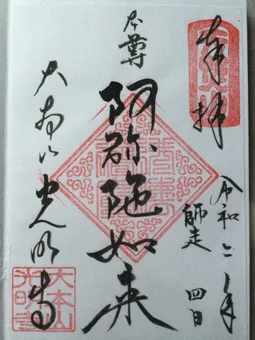 奉拝
令和二年
師走 四日
本尊
阿弥陀如来
大本山光明寺
大本山
光明寺